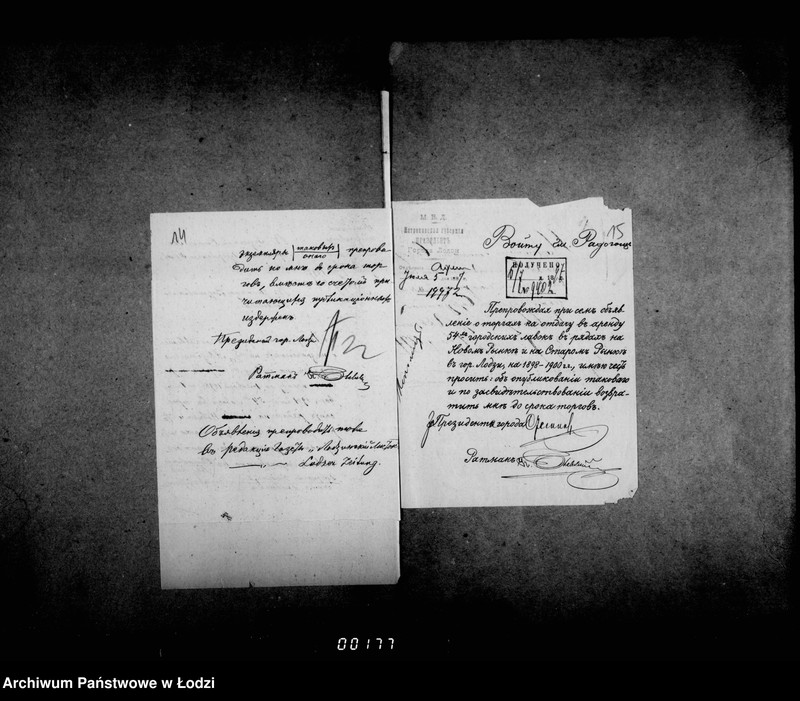 14
экземпляръ такового препрово-
дить ко мнѣ до срока тор-
говъ, вмѣстѣ со счетомъ при-
читающихся публикаціонныхъ
издержекъ
Президентъ гор. Лодзи
Ратманъ
Объявленія препроводить также
въ редакціи газетъ „Лодзинскій Листокъ
Lodzer Zeitung.
15
М. В. Д.
Петроковская губернія
ПРЕЗИДЕНТЪ
Города Лодзи
Войту гм. Радогощъ
ПОЛУЧЕНО
№ 9402
Іюля 5 дня
№ 12972
Препровождая при семъ объяв-
леніе о торгахъ на отдачу въ аренду
54хъ городскихъ лавокъ въ рядахъ на
Новомъ Рынкѣ и на Старомъ Рынкѣ
въ гор. Лодзи, на 1898-1900 гг., имѣю честь
просить объ опубликованіи таковаго
и по засвидѣтельствованіи возвра-
тить мнѣ до срока торговъ.
Президентъ города
Ратманъ
00177
Archiwum Państwowe w Łodzi